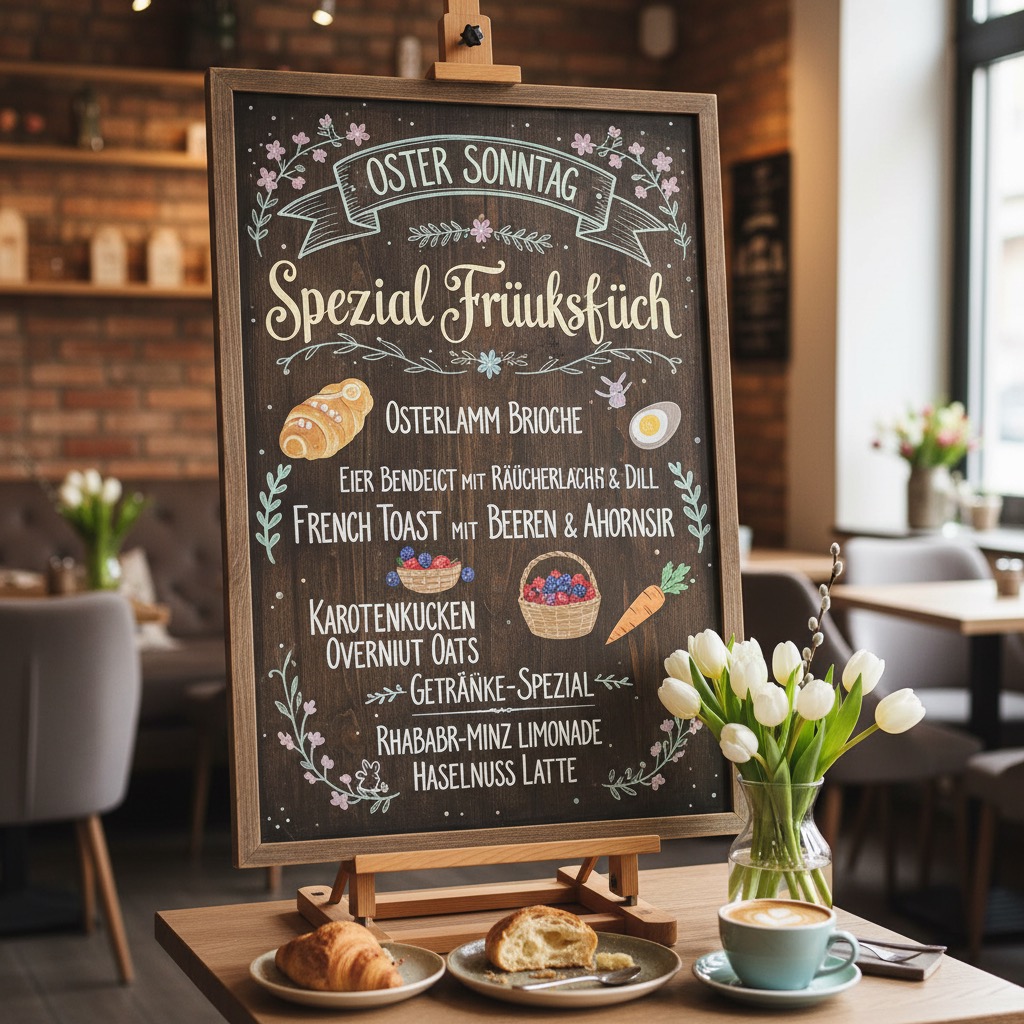 OSTER SONNTAG
Spezial Früuksfüch
OSTERLAMM BRIOCHE
EIER BENDEICT MIT RÄUCHERLACHS & DILL
FRENCH TOAST MIT BEEREN & AHORNSIR
KAROTENKUCKEN
OVERNIUT OATS
GETRÄNKE-SPEZIAL
RHABABR-MINZ LIMONADE
HASELNUSS LATTE